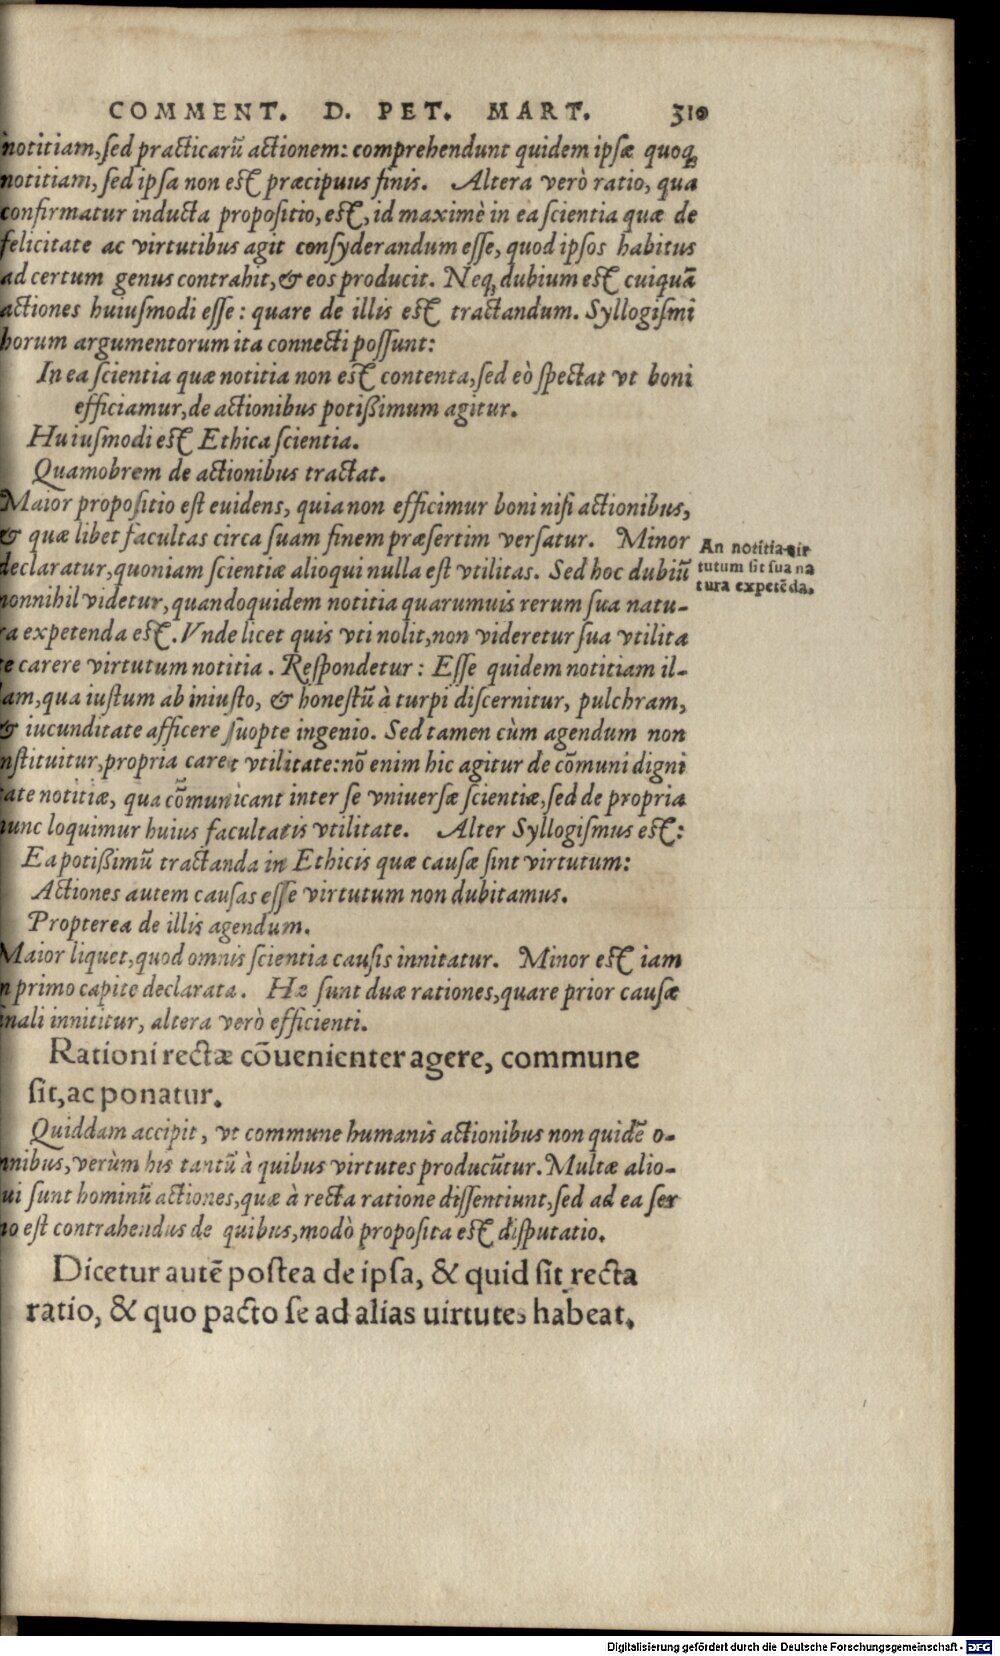 COMMENT. D. PET. MART. 310
notitiam, sed practicarū actionem: comprehendunt quidem ipsæ quoq;
notitiam, sed ipsa non est præcipuus finis. Altera verò ratio, qua
confirmatur inducta propositio, est, id maximè in ea scientia quæ de
felicitate ac virtutibus agit consyderandum esse, quod ipsos habitus
ad certum genus contrahit, & eos producit. Neq; dubium est cuiquā
actiones huiusmodi esse: quare de illis est tractandum. Syllogismi
horum argumentorum ita connecti possunt:
In ea scientia quæ notitia non est contenta, sed eò spectat vt boni
efficiamur, de actionibus potißimum agitur.
Huiusmodi est Ethica scientia.
Quamobrem de actionibus tractat.
Maior propositio est euidens, quia non efficimur boni nisi actionibus,
& quæ libet facultas circa suam finem præsertim versatur. Minor
declaratur, quoniam scientiæ alioqui nulla est vtilitas. Sed hoc dubiū
nonnihil videtur, quandoquidem notitia quarumuis rerum sua natu-
ra expetenda est. Vnde licet quis vti nolit, non videretur sua vtilita
te carere virtutum notitia. Respondetur: Esse quidem notitiam il-
lam, qua iustum ab iniusto, & honestū à turpi discernitur, pulchram,
& iucunditate afficere suopte ingenio. Sed tamen cùm agendum non
nstituitur, propria caret vtilitate: nō enim hic agitur de cōmuni digni
tate notitiæ, qua cōmunicant inter se vniuersæ scientiæ, sed de propria
nunc loquimur huius facultatis vtilitate. Alter Syllogismus est:
Ea potißimū tractanda in Ethicis quæ causæ sint virtutum:
Actiones autem causas esse virtutum non dubitamus.
Propterea de illis agendum.
Maior liquet, quod omnis scientia causis innitatur. Minor est iam
n primo capite declarata. Hæ sunt duæ rationes, quare prior causæ
inali innititur, altera verò efficienti.
Rationi rectæ cōuenienter agere, commune
sit, ac ponatur.
Quiddam accipit, vt commune humanis actionibus non quidē o-
mnibus, verùm his tantū à quibus virtutes producūtur. Multæ alio-
ui sunt hominū actiones, quæ à recta ratione dissentiunt, sed ad ea ser
no est contrahendus de quibus, modò proposita est disputatio.
Dicetur autē postea de ipsa, & quid sit recta
ratio, & quo pacto se ad alias uirtutes habeat.
An notitia uir
tutum sit sua na
tura expetēda.
Digitalisierung gefördert durch die Deutsche Forschungsgemeinschaft - DFG